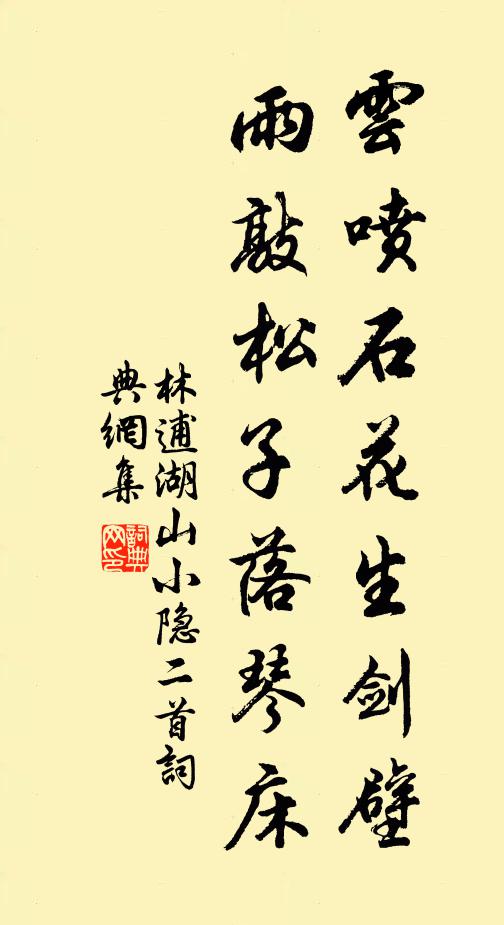 雲噴石花生剑壁
雨敲松子落琴床
林逋湖山小隐二首詞
典網集
詞典网印